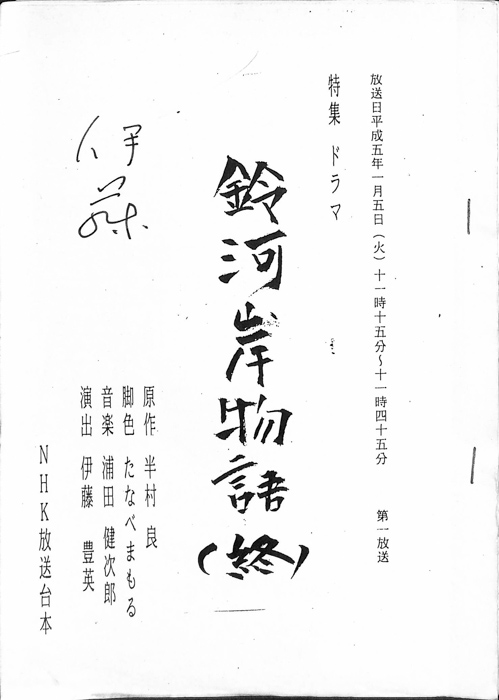 放送日平成五年一月五日(火)十一時十五分〜十一時四十五分 第一放送
特集 ドラマ
鈴河岸物語
(終)
原作 半村 良
脚色 たなべまもる
音楽 浦田 健次郎
演出 伊藤 豊英
伊藤
NHK放送台本